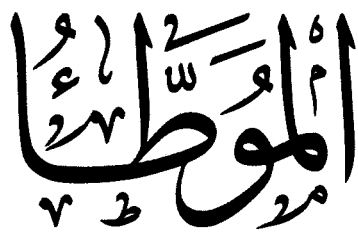 المُوَطَّأُ